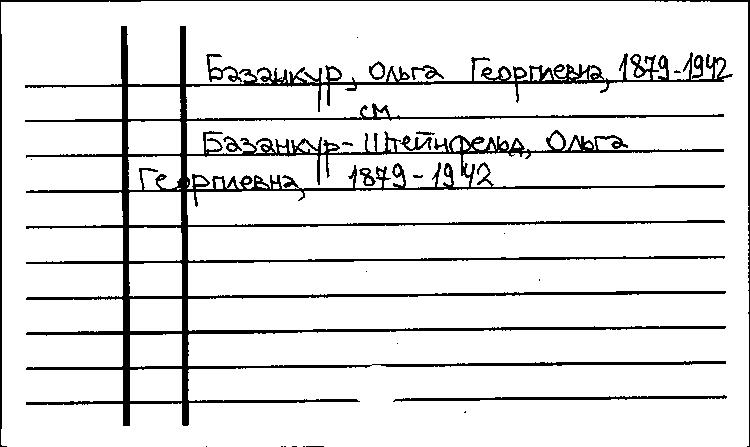 Базанкур, Ольга Георгиевна, 1879-1942
см.
Базанкур-Штейнфельд, Ольга
Георгиевна, 1879-1942